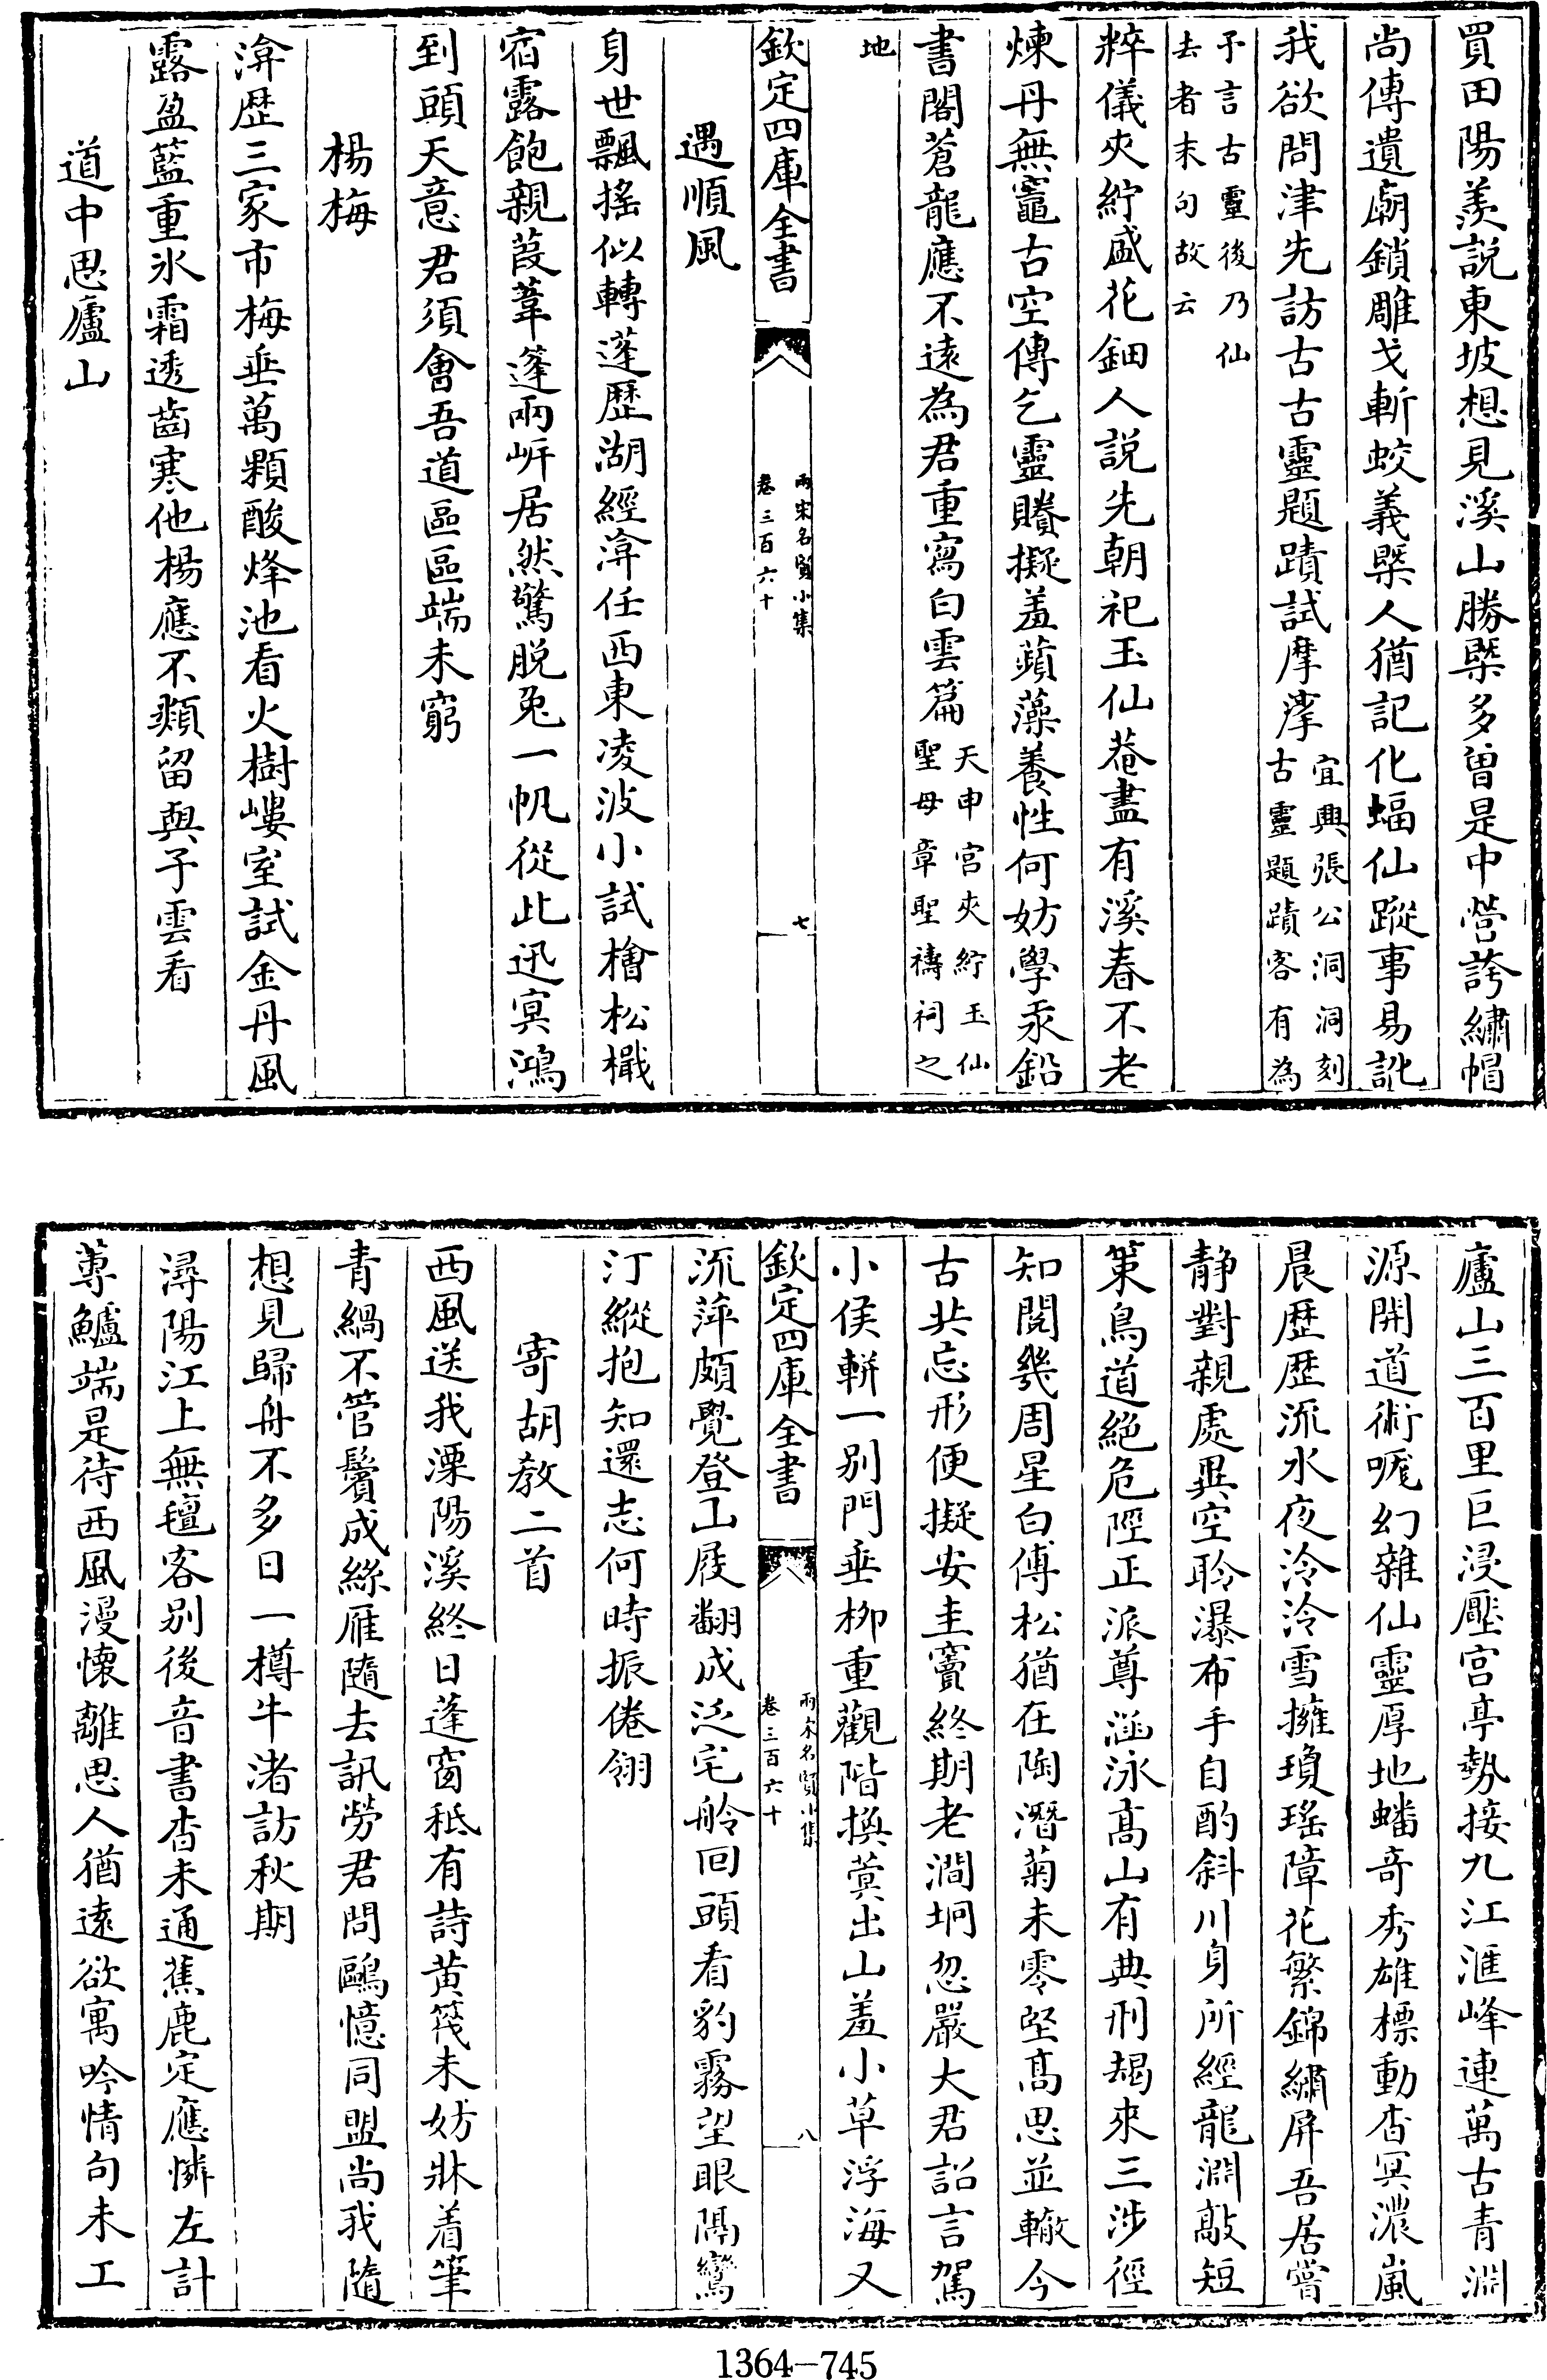 買田陽羨説東坡想見溪山勝槩多曽是中營誇繡帽
尚傳遺廟鎖雕戈斬蛟義槩人猶記化蝠仙蹤事易訛
我欲問津先訪古古靈題蹟試摩挲宜興張公洞洞刻古靈題蹟客有為
予言古靈後乃仙去者末句故云
粹儀夾紵盛花鈿人説先朝祀玉仙菴盡有溪春不老
煉丹無竈古空傳乞靈賸擬羞蘋藻養性何妨學汞鉛
書閣蒼龍應不遠為君重寫白雲篇天申宮夾紵玉仙聖母章聖禱祠之
地
欽定四庫全書
兩宋名賢小集
卷三百六十
七
遇順風
身世飄搖似轉蓬歴湖經渰任西東凌波小試檜松檝
宿露飽親葭葦蓬兩岍居然驚脱兔一帆從此迅㝠鴻
到頭天意君須會吾道區區端未窮
楊梅
渰歴三家市梅垂萬顆酸烽池看火樹嶁室試金丹風
露盈籃重氷霜透齒寒他楊應不類留與子雲看
道中思廬山
廬山三百里巨浸壓宫亭勢接九江滙峰連萬古青淵
源開道術哤幻雜仙靈厚地蟠竒秀雄標動杳冥濃嵐
晨歴歴流水夜泠泠雪擁瓊瑤障花繁錦繡屏吾居嘗
静對親處異空聆瀑布手自酌斜川身所經龍淵敲短
策鳥道絶危陘正派尊涵泳髙山有典刑朅來三涉徑
知閲幾周星白傅松猶在陶潛菊未零堅髙思並轍今
古共忘形便擬安圭竇終期老澗坰忽嚴大君詔言駕
小侯軿一别門垂栁重觀階換蓂出山羞小草浮海又
欽定四庫全書
兩宋名賢小集
卷三百六十
八
流萍頗覺登山屐翻成泛宅舲回頭看豹霧望眼隔鸞
汀縱抱知還志何時振倦翎
寄胡教二首
西風送我溧陽溪終日蓬窗秪有詩黄筏未妨牀着筆
青綱不管鬢成絲雁隨去訊勞君問鷗憶同盟尚我隨
想見歸舟不多日一樽牛渚訪秋期
潯陽江上無氊客别後音書杳未通蕉鹿定應憐左計
蓴鱸端是待西風漫懷離思人猶遠欲寓吟情句未工
1364-745